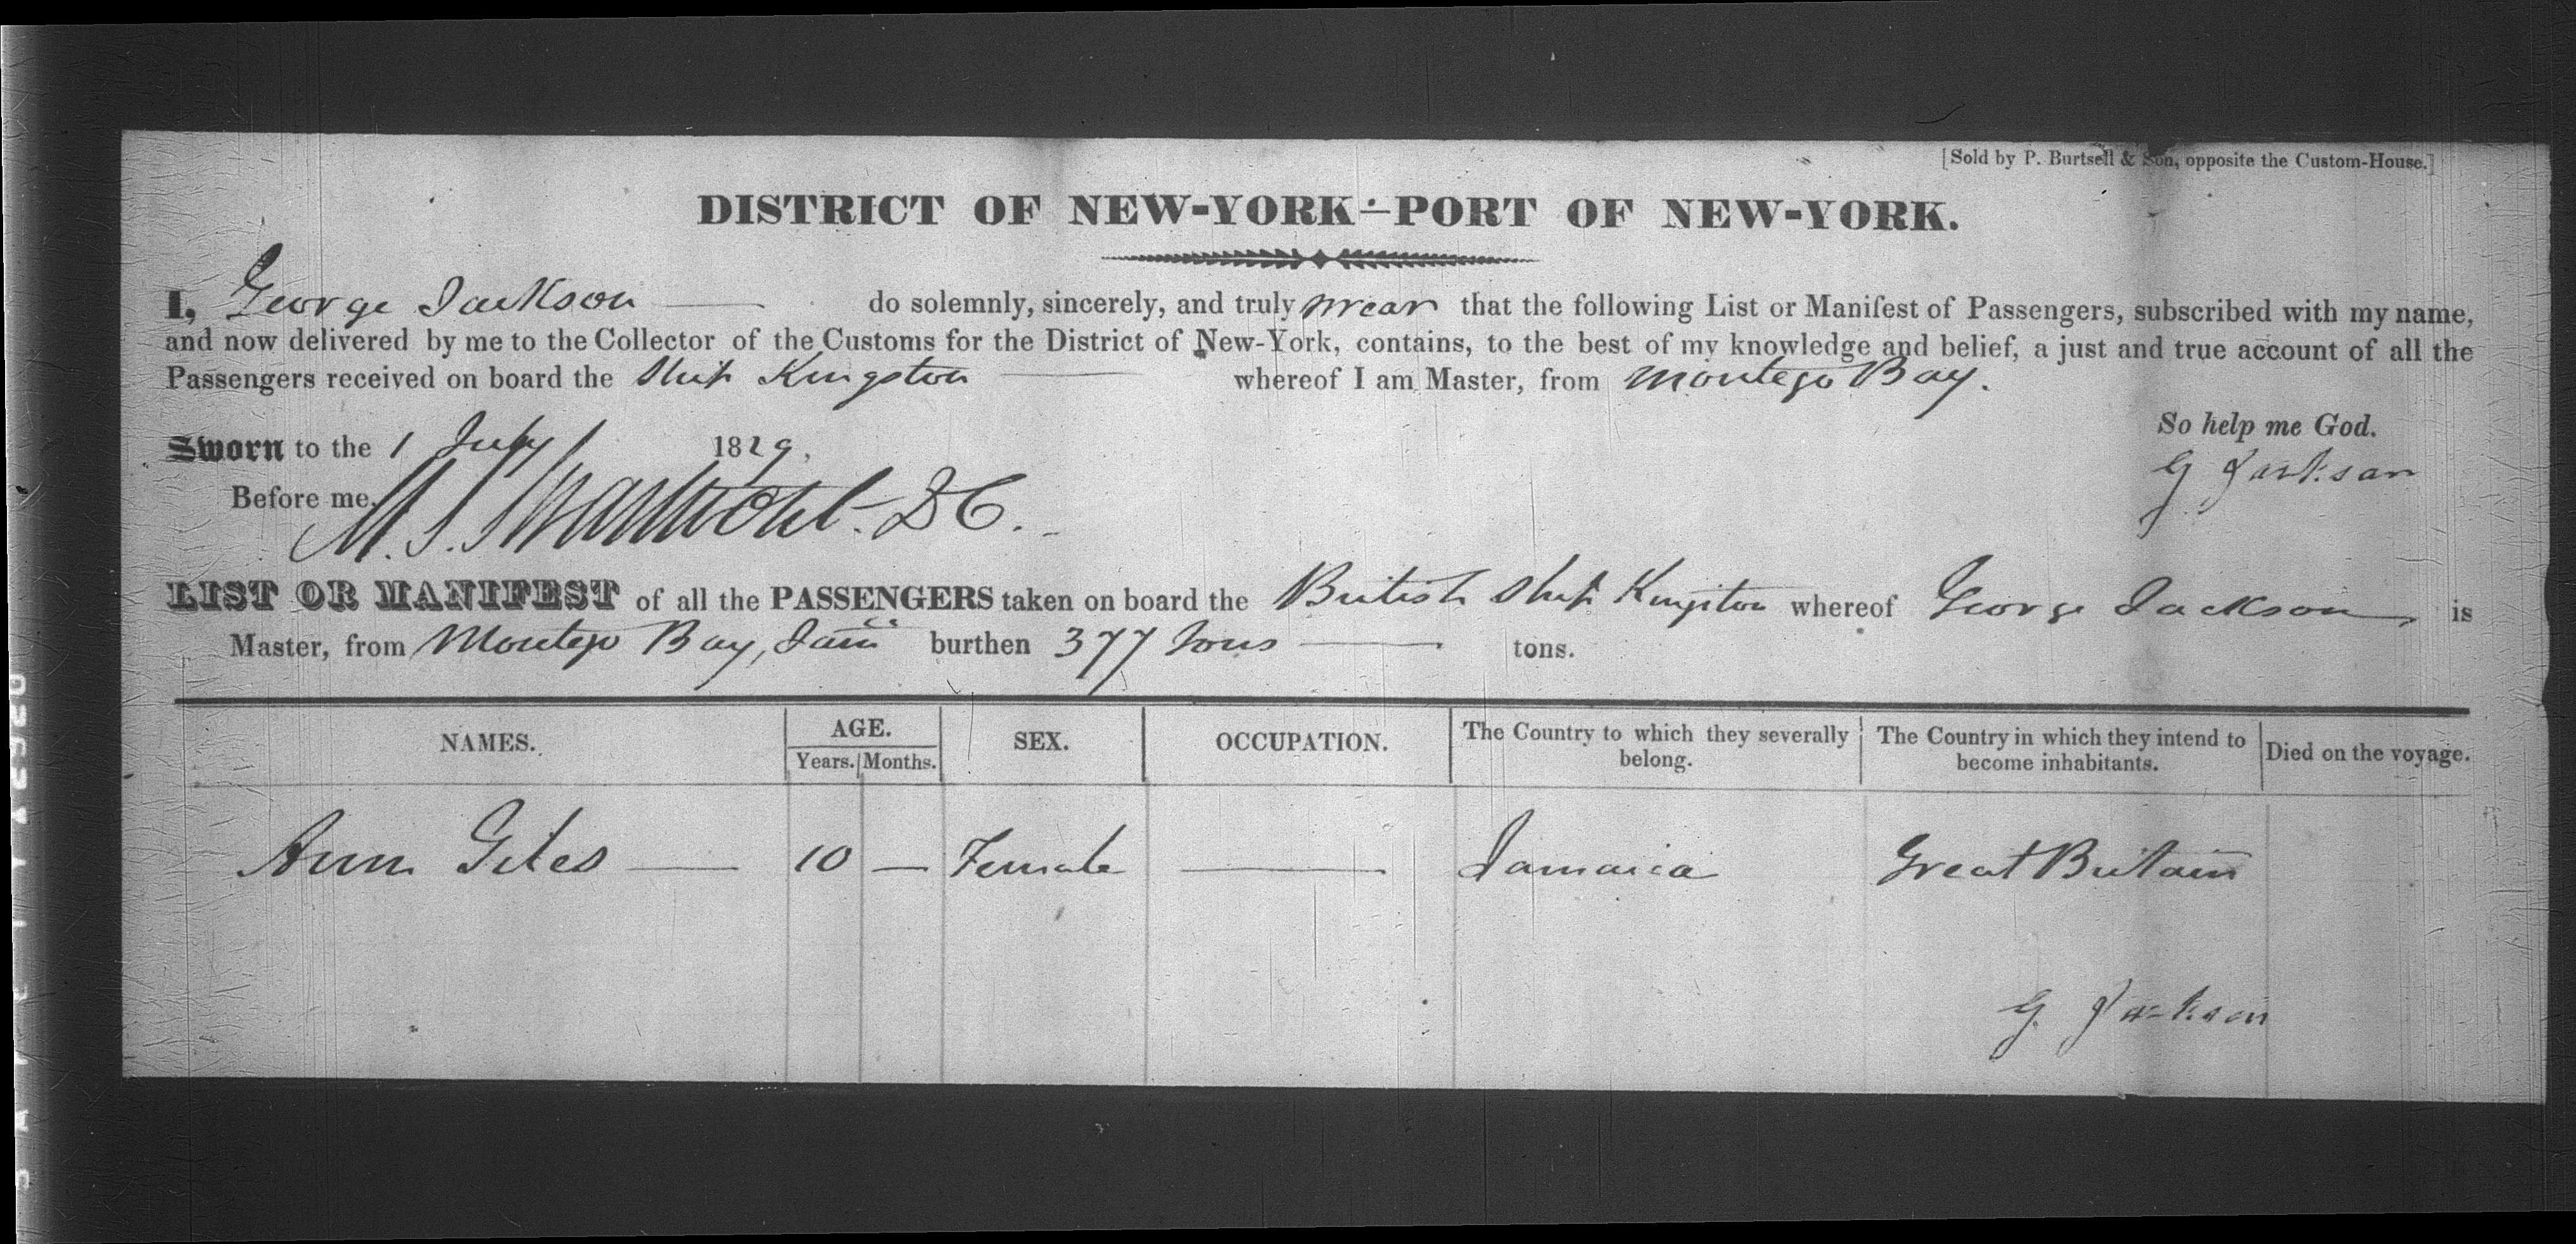 [Sold by P. Burtsell & Son, opposite the Custom-House.]
DISTRICT OF NEW-YORK—PORT OF NEW-YORK.
I, George Jackson do solemnly, sincerely, and truly swear that the following List or Manifest of Passengers, subscribed with my name,
and now delivered by me to the Collector of the Customs for the District of New-York, contains, to the best of my knowledge and belief, a just and true account of all the
Passengers received on board the Ship Kingston whereof I am Master, from Montego Bay.
So help me God.
Sworn to the 1 July 1829,
G Jackson
Before me, M. S. Swartwout D C.
LIST OR MANIFEST of all the PASSENGERS taken on board the British Ship Kingston whereof George Jackson is
Master, from Montego Bay, Jam burthen 377 Tons tons.
NAMES. AGE. SEX. OCCUPATION. The Country to which they severally belong. The Country in which they intend to become inhabitants. Died on the voyage.
Years. Months.
Ann Giles — 10 — Female — Jamaica Great Britain
G. Jackson